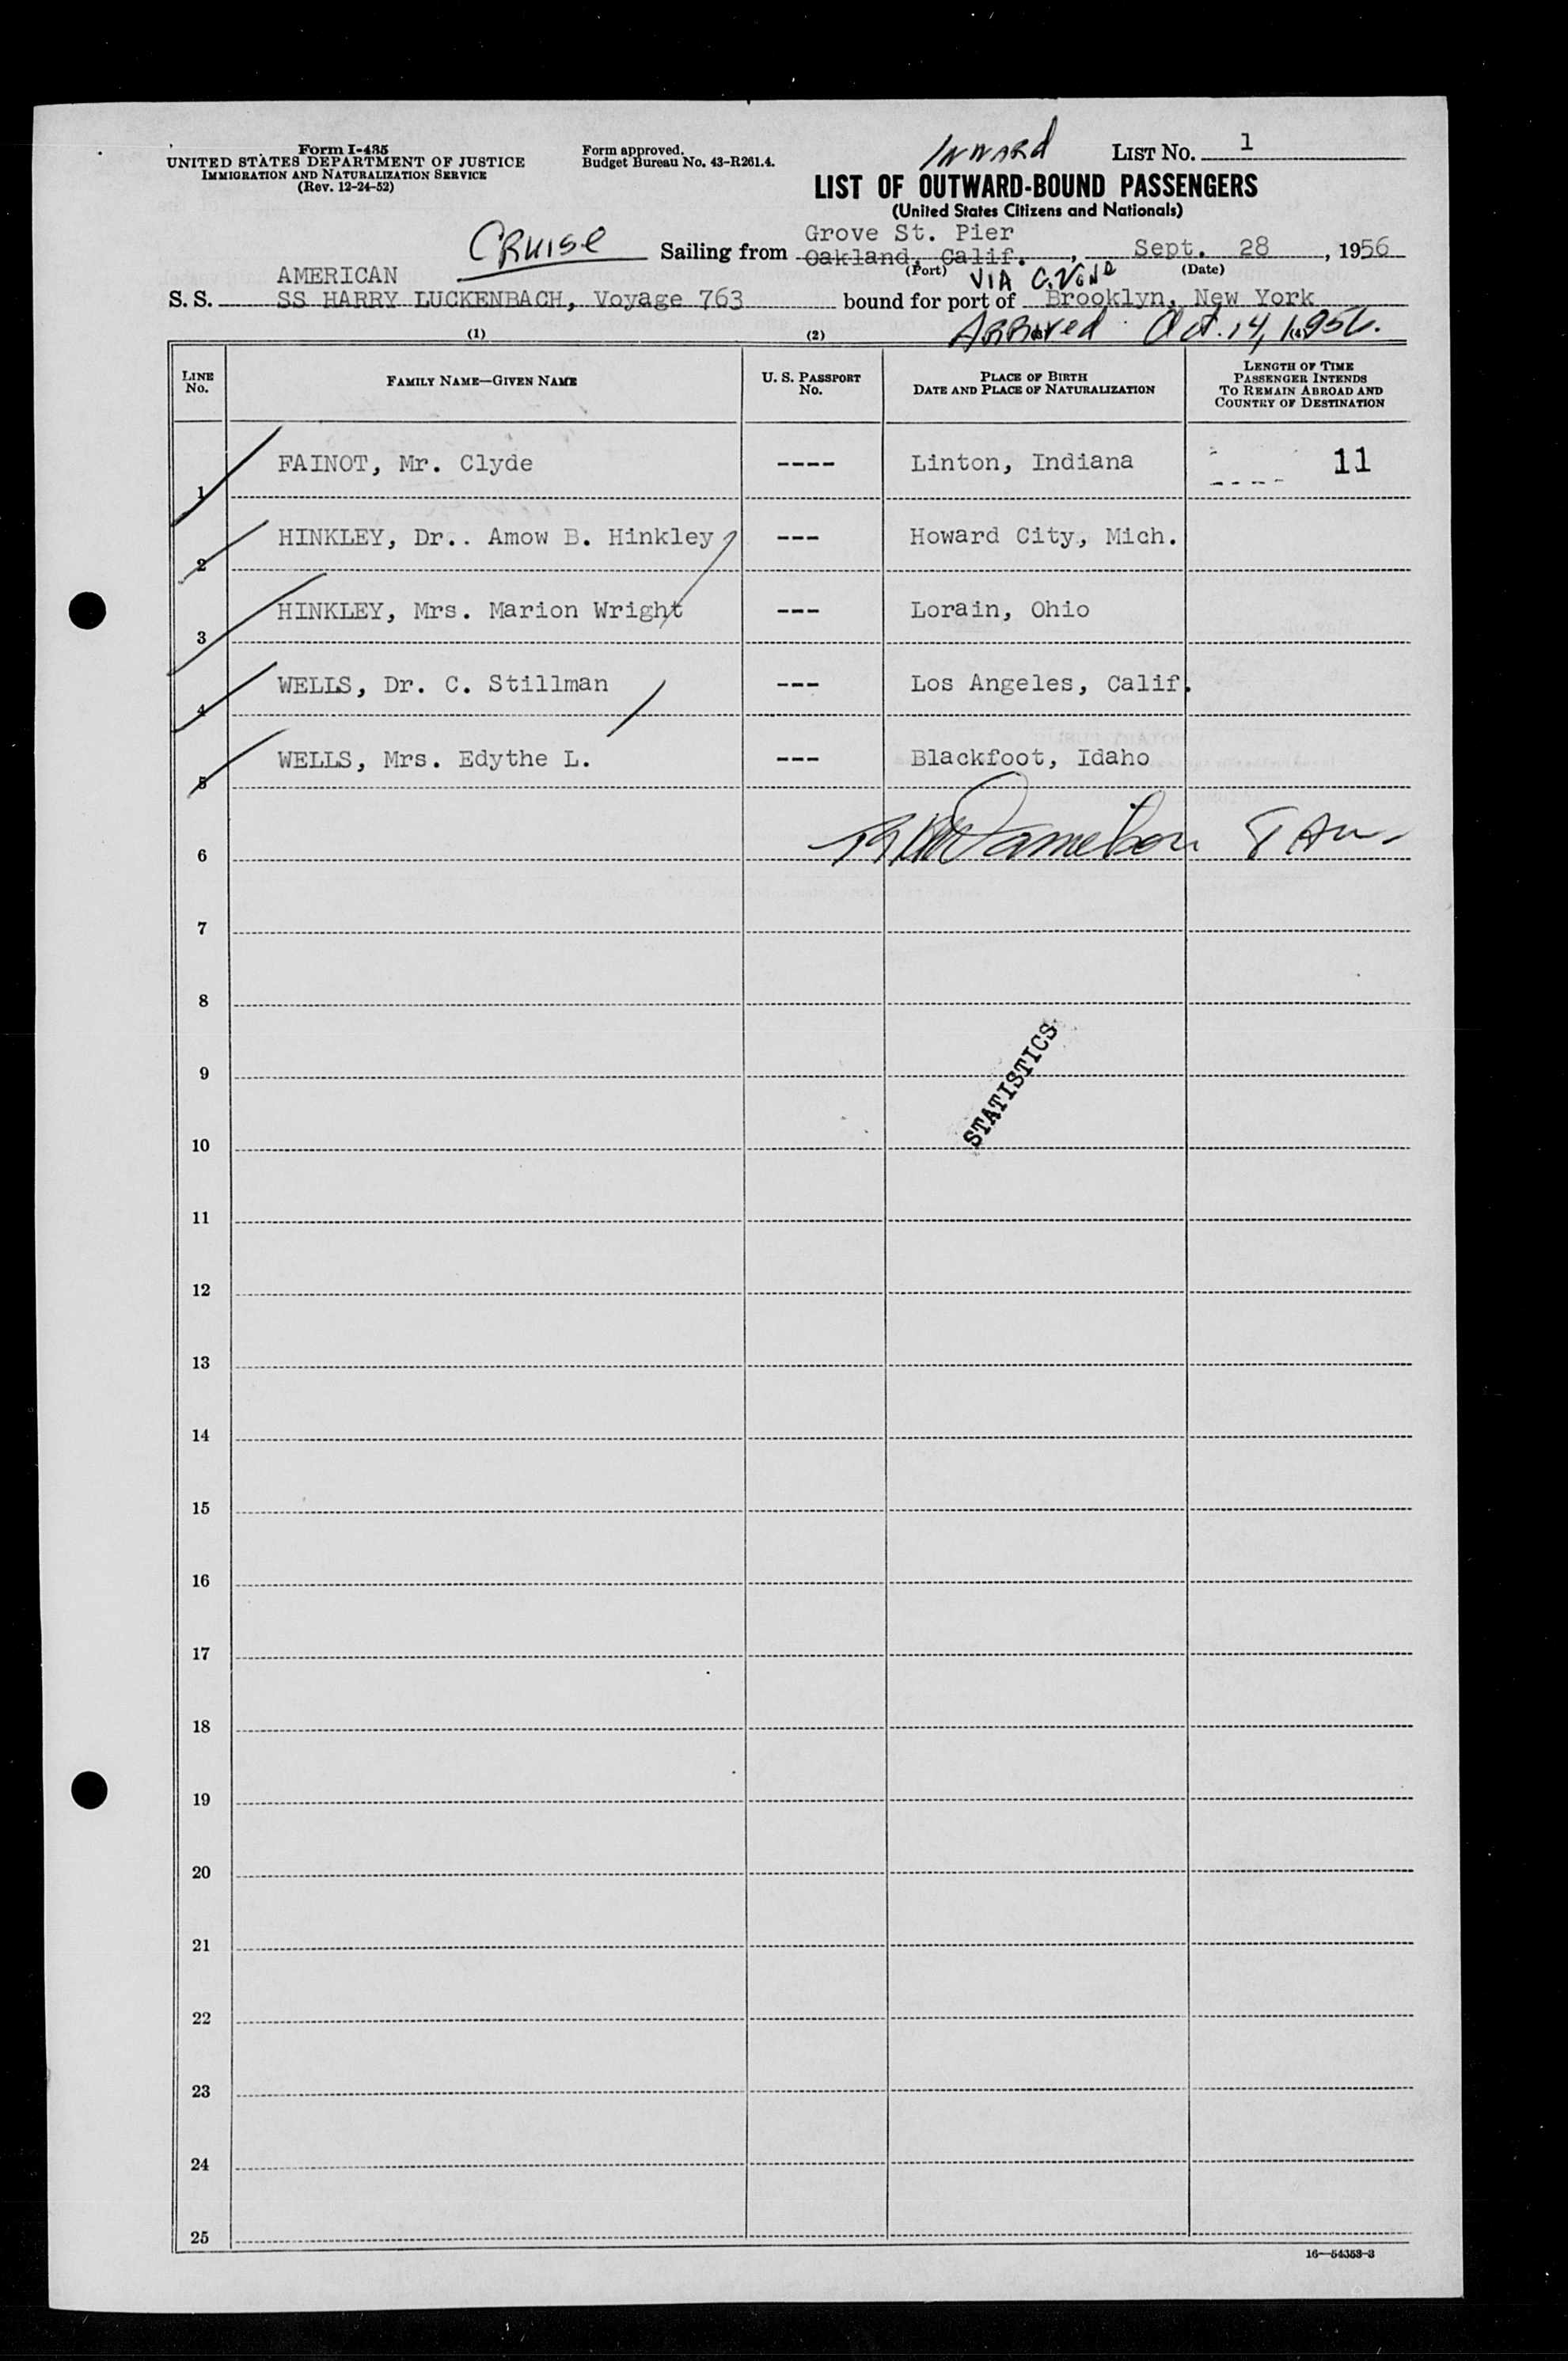 Form I-435
UNITED STATES DEPARTMENT OF JUSTICE
IMMIGRATION AND NATURALIZATION SERVICE
(Rev. 12-24-52)
Form approved.
Budget Bureau No. 43-R261.4.
INWARD
LIST No. 1
LIST OF OUTWARD-BOUND PASSENGERS
(United States Citizens and Nationals)
CRUISE
Grove St. Pier
Sailing from Oakland, Calif., Sept. 28, 1956
(Port) (Date)
AMERICAN
VIA
S. S. SS HARRY LUCKENBACH, Voyage 763 bound for port of Brooklyn, New York
Arrived Oct. 14, 1956.
(1) (2)
LINE No.
FAMILY NAME—GIVEN NAME
U. S. PASSPORT No.
PLACE OF BIRTH
DATE AND PLACE OF NATURALIZATION
LENGTH OF TIME
PASSENGER INTENDS
TO REMAIN ABROAD AND
COUNTRY OF DESTINATION
1 FAINOT, Mr. Clyde ---- Linton, Indiana ---- 11
2 HINKLEY, Dr.. Amow B. Hinkley --- Howard City, Mich.
3 HINKLEY, Mrs. Marion Wright --- Lorain, Ohio
4 WELLS, Dr. C. Stillman --- Los Angeles, Calif.
5 WELLS, Mrs. Edythe L. --- Blackfoot, Idaho
6
7
8
9
STATISTICS
10
11
12
13
14
15
16
17
18
19
20
21
22
23
24
25
16—54353-3